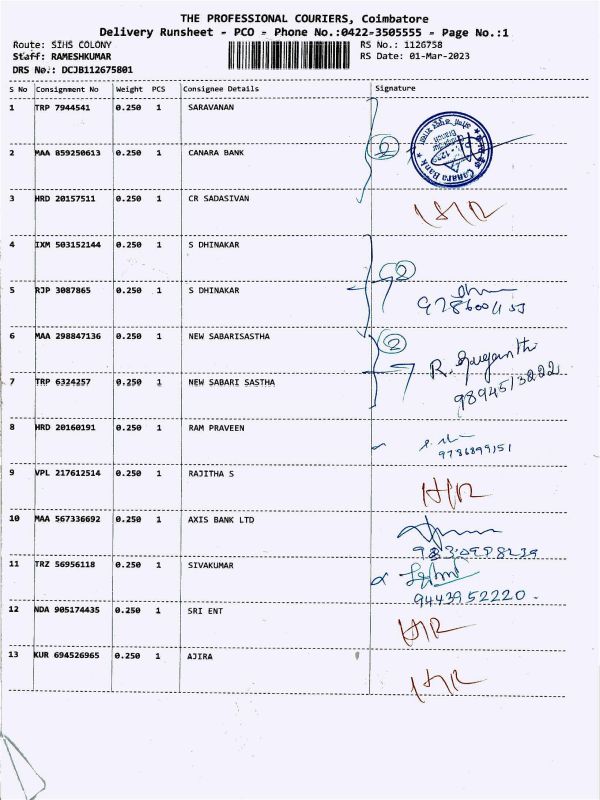 THE PROFESSIONAL COURIERS, Coimbatore
Delivery Runsheet - PCO - Phone No.:0422-3505555 - Page No.:1
Route: SIHS COLONY RS No.: 1126758
Staff: RAMESHKUMAR RS Date: 01-Mar-2023
DRS No.: DCJB112675801
S No Consignment No Weight PCS Consignee Details Signature
1 TRP 7944541 0.250 1 SARAVANAN
2 MAA 859250613 0.250 1 CANARA BANK 2
Canara Bank
3 HRD 20157511 0.250 1 CR SADASIVAN
4 IXM 503152144 0.250 1 S DHINAKAR 2
5 RJP 3087865 0.250 1 S DHINAKAR
6 MAA 298847136 0.250 1 NEW SABARISASTHA 2
R. Suganthi
7 TRP 6324257 0.250 1 NEW SABARI SASTHA
9894513222
8 HRD 20160191 0.250 1 RAM PRAVEEN
9 VPL 217612514 0.250 1 RAJITHA S
10 MAA 567336692 0.250 1 AXIS BANK LTD
11 TRZ 56956118 0.250 1 SIVAKUMAR
9443952220.
12 NDA 905174435 0.250 1 SRI ENT
13 KUR 694526965 0.250 1 AJIRA